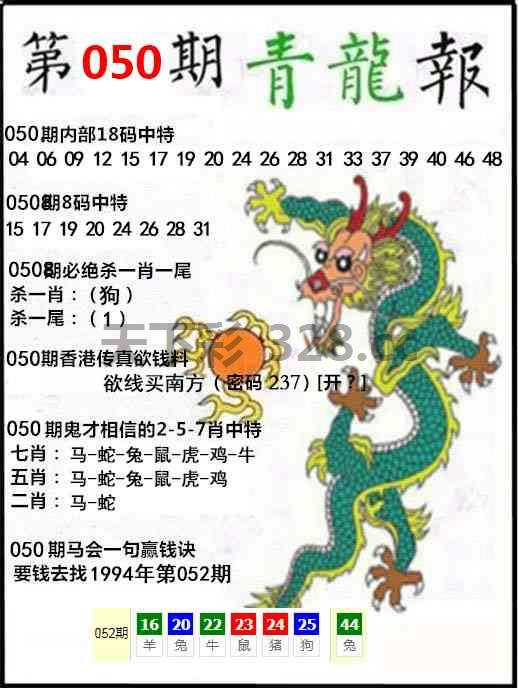 第050期青龍報
050期内部18码中特
04 06 09 12 15 17 19 20 24 26 28 31 33 37 39 40 46 48
050期8码中特
15 17 19 20 24 26 28 31
050期必绝杀一肖一尾
杀一肖：（狗）
杀一尾：（1）
天下彩 328.cc
050期香港传真欲钱料
欲线买南方（密码 237）[开？]
050期鬼才相信的2-5-7肖中特
七肖：马-蛇-兔-鼠-虎-鸡-牛
五肖：马-蛇-兔-鼠-虎-鸡
二肖：马-蛇
050期马会一句赢钱诀
要钱去找1994年第052期
052期 16 20 22 23 24 25 44
羊 兔 牛 鼠 猪 狗 兔